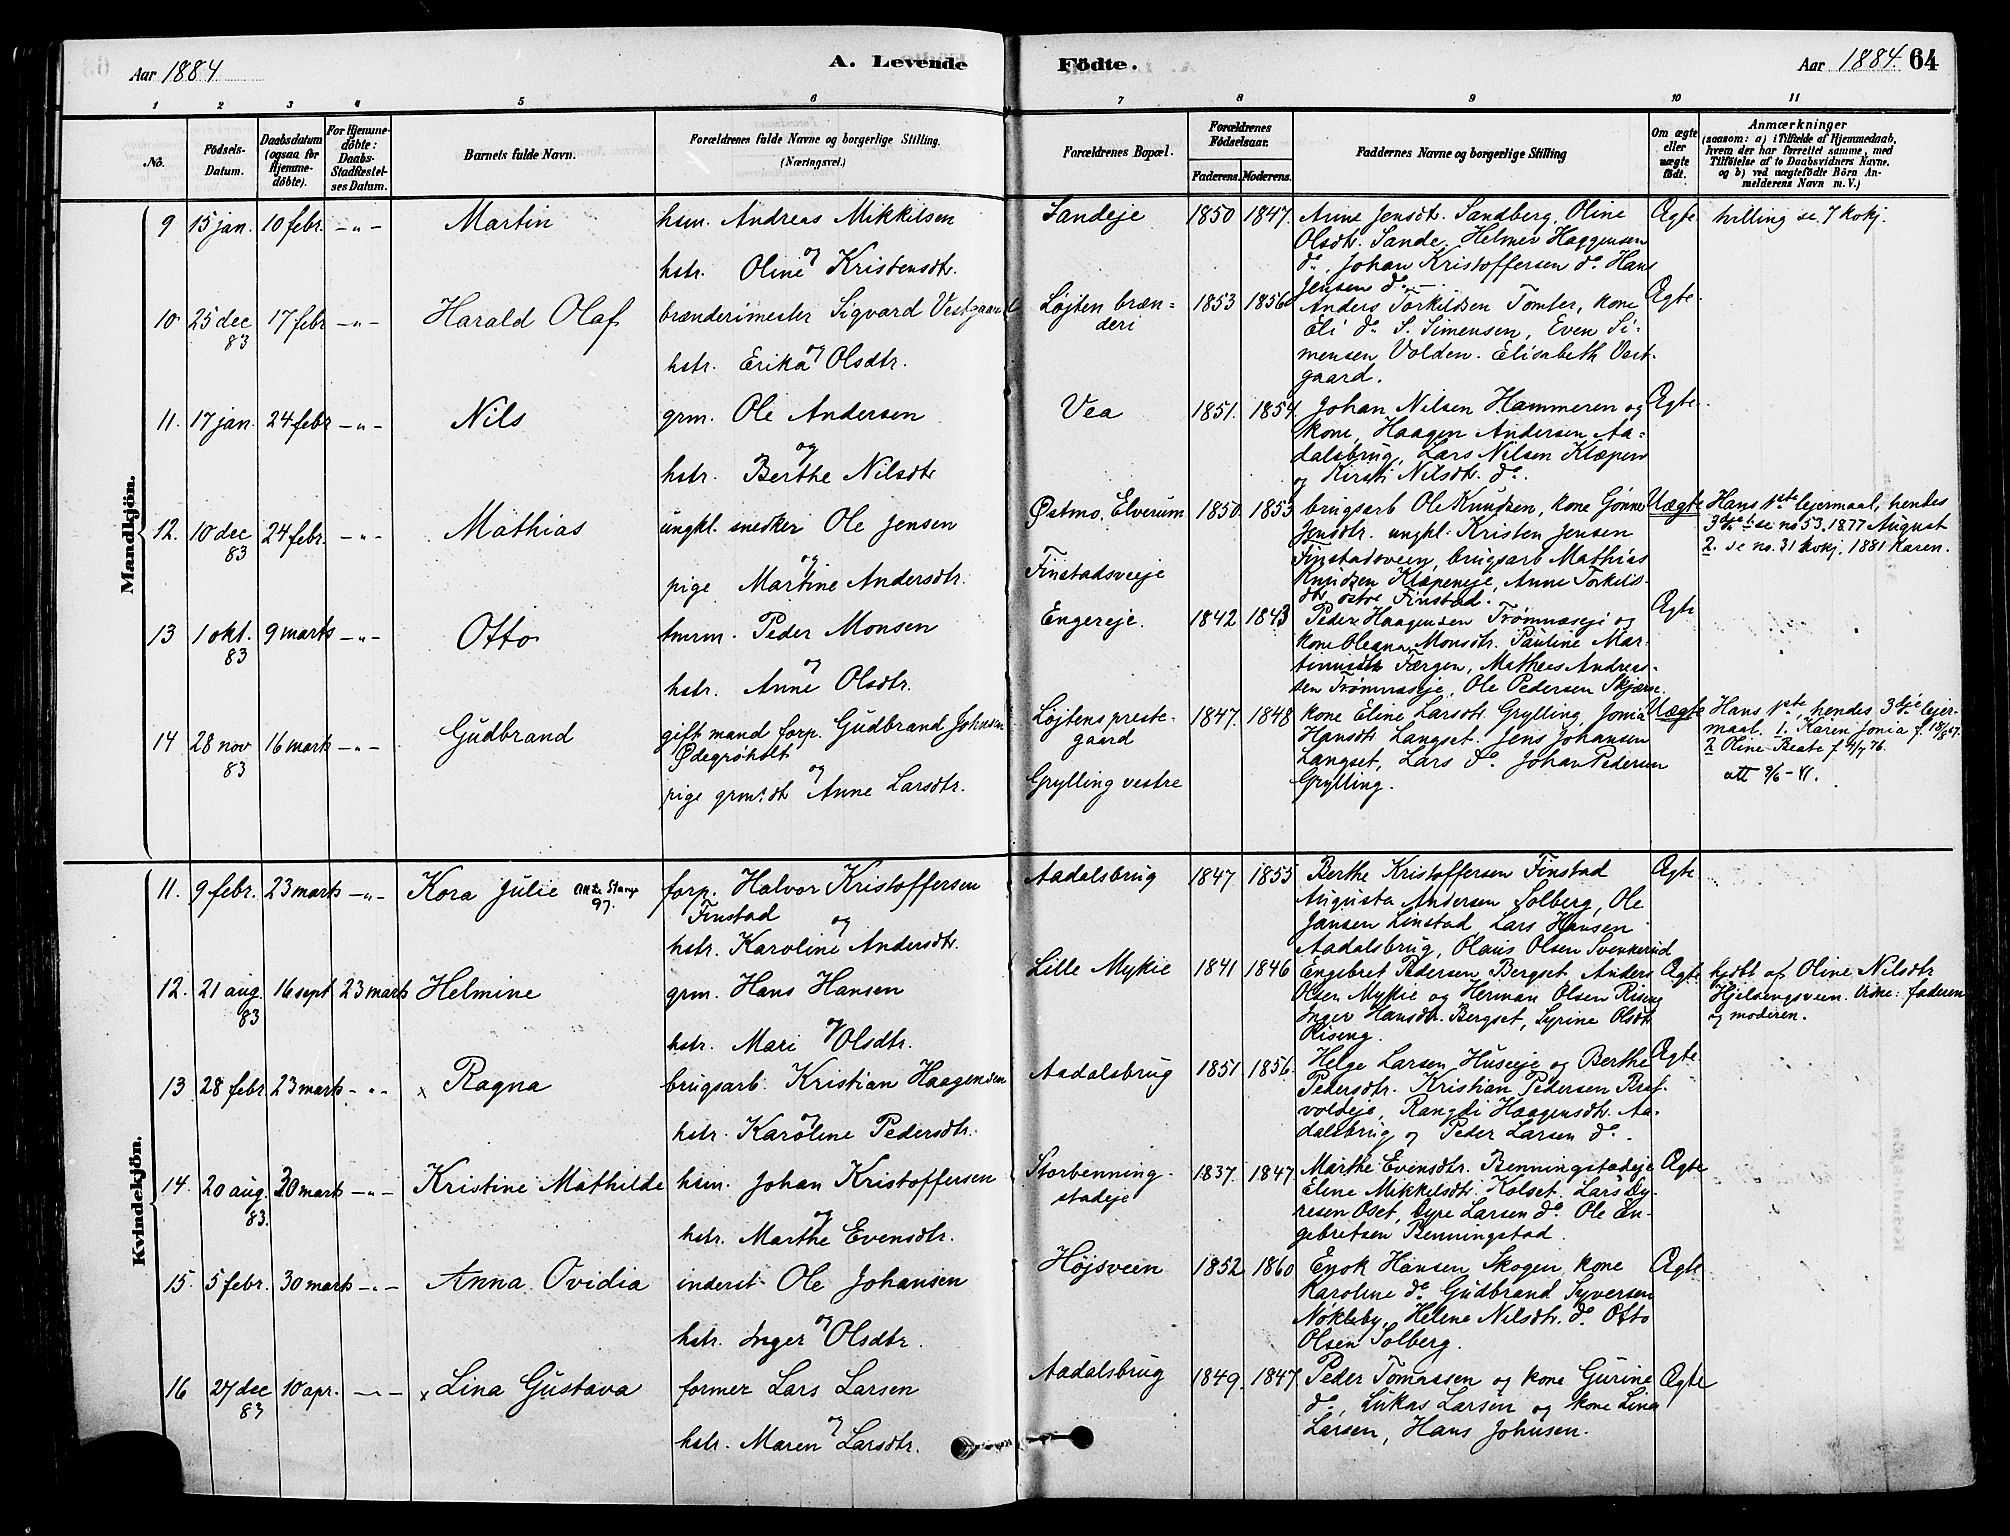 Aar 1884
A. Levende
Födte.
Aar 1884. 64
1 2 3 4 5 6 7 8 9 10 11
No.
Födsels-
Datum.
Daabsdatum
(ogsaa for
Hjemme-
döbte).
For Hjemme-
döbte:
Daabs-
Stadfæstel-
ses Datum.
Barnets fulde Navn.
Forældrenes fulde Navne og borgerlige Stilling.
(Næringsvei.)
Forældrenes Bopæl.
Forældrenes
Födselsaar.
Faderens. Moderens.
Faddernes Navne og borgerlige Stilling
Om ægte
eller
uægte
födt.
Anmærkninger
(saasom: a) i Tilfælde af Hjemmedaab,
hvem der har forrettet samme, med
Tilföielse af to Daabsvidners Navne.
og b) ved uægtefödte Börn An-
melderens Navn m. V.)
Mandkjön.
9 15 jan. 10 febr. -"- Martin
hsm. Andreas Mikkelsen
og
hstr. Oline Kristensdtr.
Sandeje 1850 1847.
Anne Jensdtr. Sandberg, Oline
Olsdtr. Sande, Helmer Haagensen
do. Johan Kristoffersen do. Hans
Jensen do.
Ægte
tvilling se 7 kvkj.
10 25 dec 83 17 febr -"- Harald Olaf
brænderimester Sigvard Vestgaard
og
hstr. Erika Olsdtr.
Løjten bræn-
deri
1853 1856
Anders Torkildsen Tomter, kone
Eli do S. Simensen, Even Si-
mensen Volden. Elisabeth Vest-
gaard.
Ægte
11. 17 jan. 24 febr -"- Nils
grm. Ole Andersen
og
hstr. Berthe Nilsdtr
Vea 1851. 1854
Johan Nilsen Hammeren og
kone, Haagen Andersen Aa-
dalsbrug, Lars Nilsen Klæpen
og Kirsti Nilsdtr. do.
Ægte
12. 10 dec 83 24 febr. -"- Mathias
ungkl. snedker Ole Jensen
og
pige Martine Andersdtr.
Østmo, Elverum
Finstadsveje
1850 1853
brugsarb Ole Knudsen, kone Gønner
Jensdtr. ungkl. Kristen Jensen
Finstadsveen, brugsarb Mathias
Knudsen Klæpeneje, Anne Torkils-
dtr østre Finstad.
Uægte
Hans 1ste lejermaal, hendes
3dje se no 53. 1877 August
2. se no. 31 kvkj. 1881 Karen.
13 1 okt. 83 9 marts -"- Otto
tmrm. Peder Monsen
og
hstr. Anne Olsdtr.
Engereje. 1842 1843
Peder Haagensen Trømnæseje og
kone Oleana Monsdtr. Pauline Mar-
tinusdtr Færgen, Mathees Andreas-
sen Trømnæseje, Ole Pedersen Skjærn.
Ægte
14 28 nov 83 16 marts -"- Gudbrand
gift mand forp. Gudbrand Johnsen
Ødegrøholt
og
pige grm. dtr Anne Larsdtr.
Løjtens preste-
gaard
Grylling vestre
1847. 1848
kone Eline Larsdtr. Grylling, Jonia
Hansdtr Langset. Jens Johansen
Langset, Lars do. Johan Pedersen
Grylling.
Uægte
Hans 1ste, hendes 3dje lejer-
maal. 1. Karen Jonia f. 18/8 67.
2 Oline Beate f 4/4 76.
att 9/6-41.
Kvindekjön.
11. 9 febr. 23 marts -"- Kora Julie
97.
forp. Halvor Kristoffersen
Finstad
og
hstr. Karoline Andersdtr.
Aadalsbrug 1847 1855
Berthe Kristoffersen Finstad
Augusta Andersen Solberg, Ole
Jansen Linstad, Lars Hansen
Aadalsbrug, Olaus Olsen Svenkerud
Ægte
12. 21 aug. 83 16 sept 23 marts Helmine
grm. Hans Hansen
og
hstr. Mari Olsdtr.
Lille Mykie 1841 1846
Engebret Pedersen Bergset, Anders
Olsen Mykie og Herman Olsen Riseng
Inger Hansdtr. Bergset, Syrine Olsdtr
Riseng.
Ægte
hjdbt af Oline Nilsdtr
Hjelsengsveen. Vidne: faderen
og moderen.
13 28 febr 23 marts -"- x Ragna
brugsarb. Kristian Haagensen
og
hstr. Karoline Pedersdtr.
Aadalsbrug 1851 1856.
Helge Larsen Huseje og Berthe
Pedersdtr. Kristian Pedersen Braf-
voldeje, Rangdi Haagensdtr. Aa-
dalsbrug og Peder Larsen do.
Ægte
14. 20 aug. 83. 30 marts -"- Kristine Mathilde
hsm. Johan Kristoffersen
og
hstr. Marthe Evensdtr.
Storbenning-
stadeje
1837. 1847
Marthe Evensdtr. Benningstadeje
Eline Mikkelsdtr. Kolset. Lars Dy-
resen Oset, Dyre Larsen do. Ole En-
gebretsen Benningstad.
Ægte
15. 5 febr. 30 marts -"- Anna Ovidia
inderst Ole Johansen
og
hstr. Inger Olsdtr.
Højsveen 1852 1860
Enok Hansen Skogen, kone
Karoline do Gudbrand Syversen
Nøkleby, Helene Nilsdtr. do. Otto
Olsen Solberg.
Ægte
16 27 dec 83 10 apr. -"- x Lina Gustava
former Lars Larsen
og
hstr. Maren Larsdtr.
Aadalsbrug 1849. 1847
Peder Tomassen og kone Gurine
do, Lukas Larsen og kone Lina
Larsen, Hans Johnsen.
Ægte